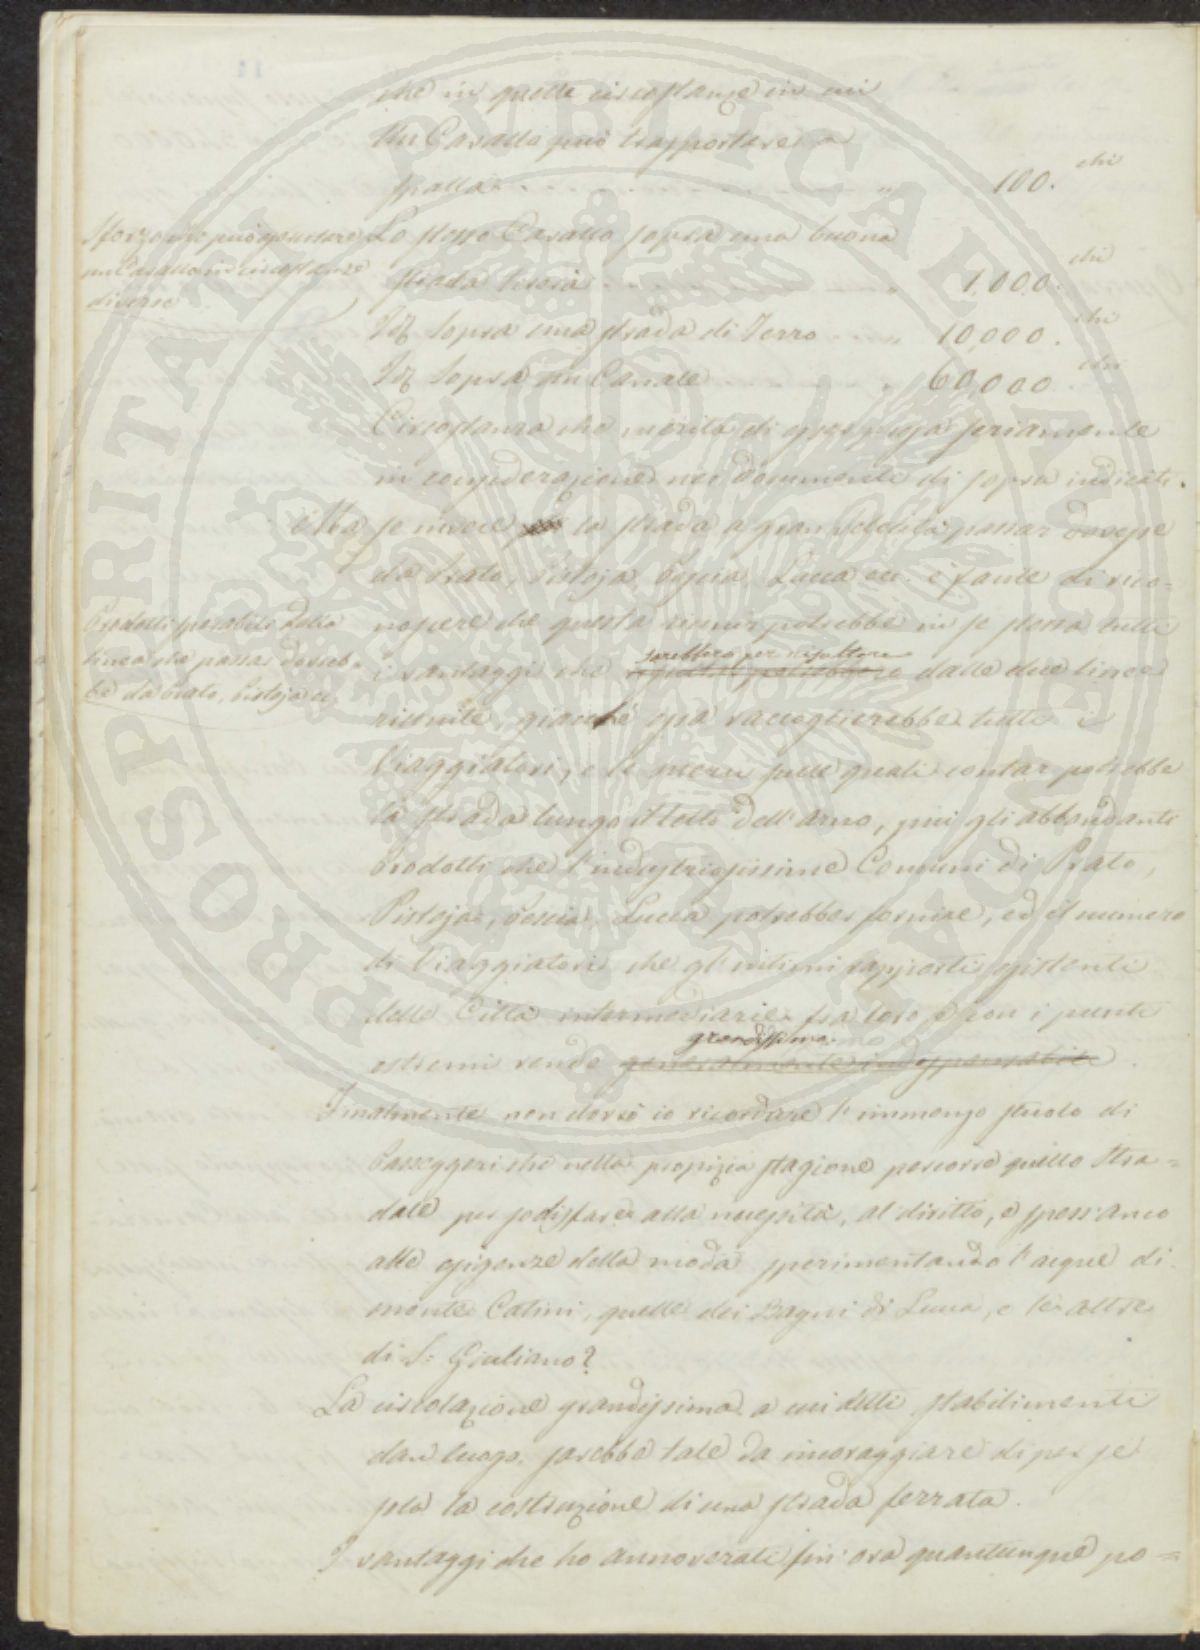 che in quelle circostanze in cui
Un Cavallo può trasportare a
spalla . . . . . . . . . . . . . . . „ 100. chi
Sforzo che può esercitare
un Cavallo in circostanze
diverse
Lo stesso Cavallo sopra una buona
strada liscia . . . . . . . . . . „ 1,000. chi
Id. Sopra una strada di Ferro . . . „ 10,000. chi
Id. Sopra un Canale „ 60,000. chi
Circostanza che merita di esser presa seriamente
in considerazione nei documenti di sopra indicati.
Ma se invece la strada a gran Velocità passar dovesse
da Prato, Pistoja, Pescia, Lucca ec. è facile di rico-
Prodotti probabili della
linea che passar dovreb-
be da Prato, Pistoja ec.
noscere che questa riunir potrebbe in se stessa tutti
sarebbero per risultare
i vantaggi che dalle due linee
riunite, giacchè essa raccoglierebbe tutti i
Viaggiatori, e le merci sulle quali contar potrebbe
la strada lungo il letto dell'Arno, più gli abbondanti
prodotti che l'industriosissime Comuni di Prato,
Pistoja, Pescia, Lucca potrebber fornire, ed il numero
di Viaggiatori che gl'intimi rapporti esistenti
delle Città intermediarie fra loro e con i punti
grandissimo.
estremi rende generalmente indispensabile.
Finalmente non dovrò io ricordare l'immenso stuolo di
Passeggeri che nella propizia stagione percorre quello Stra=
dale per sodisfare alla necessità, al diritto, e spess'anco
alle esigenze della moda sperimentando l'acque di
monte Catini, quelle dei Bagni di Lucca, e le altre
di S: Giuliano?
La circolazione grandissima a cui detti stabilimenti
dan luogo sarebbe tale da incoraggiare di per se
sola la costruzione di una strada ferrata.
I vantaggi che ho annoverati fin'ora quantunque po=
PROSPERITATI PUBLICAE